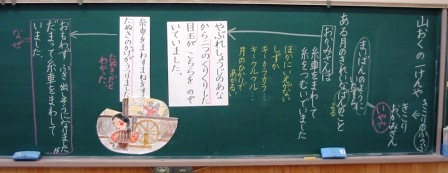 山おくの一けんや
きこり
おかみさん
いやや
まいばんのように
ある月のきれいなばんのこと
おかみさんは
糸車をまわして
糸をつむいでいました
ほかにいえがない
しずか
キーカラカラ
キークルクル
月のひかりで
あかるい
やぶれしょうじのあな
から、二つのくりくりした
目玉が、こちらをのぞ
いていました。
糸車をまわすまねをする
たぬきのかげがうつりました
たぬきだと
わかって
おもわずふき出しそうになりましたが
だまって糸車をまわして
いました。
なぜ